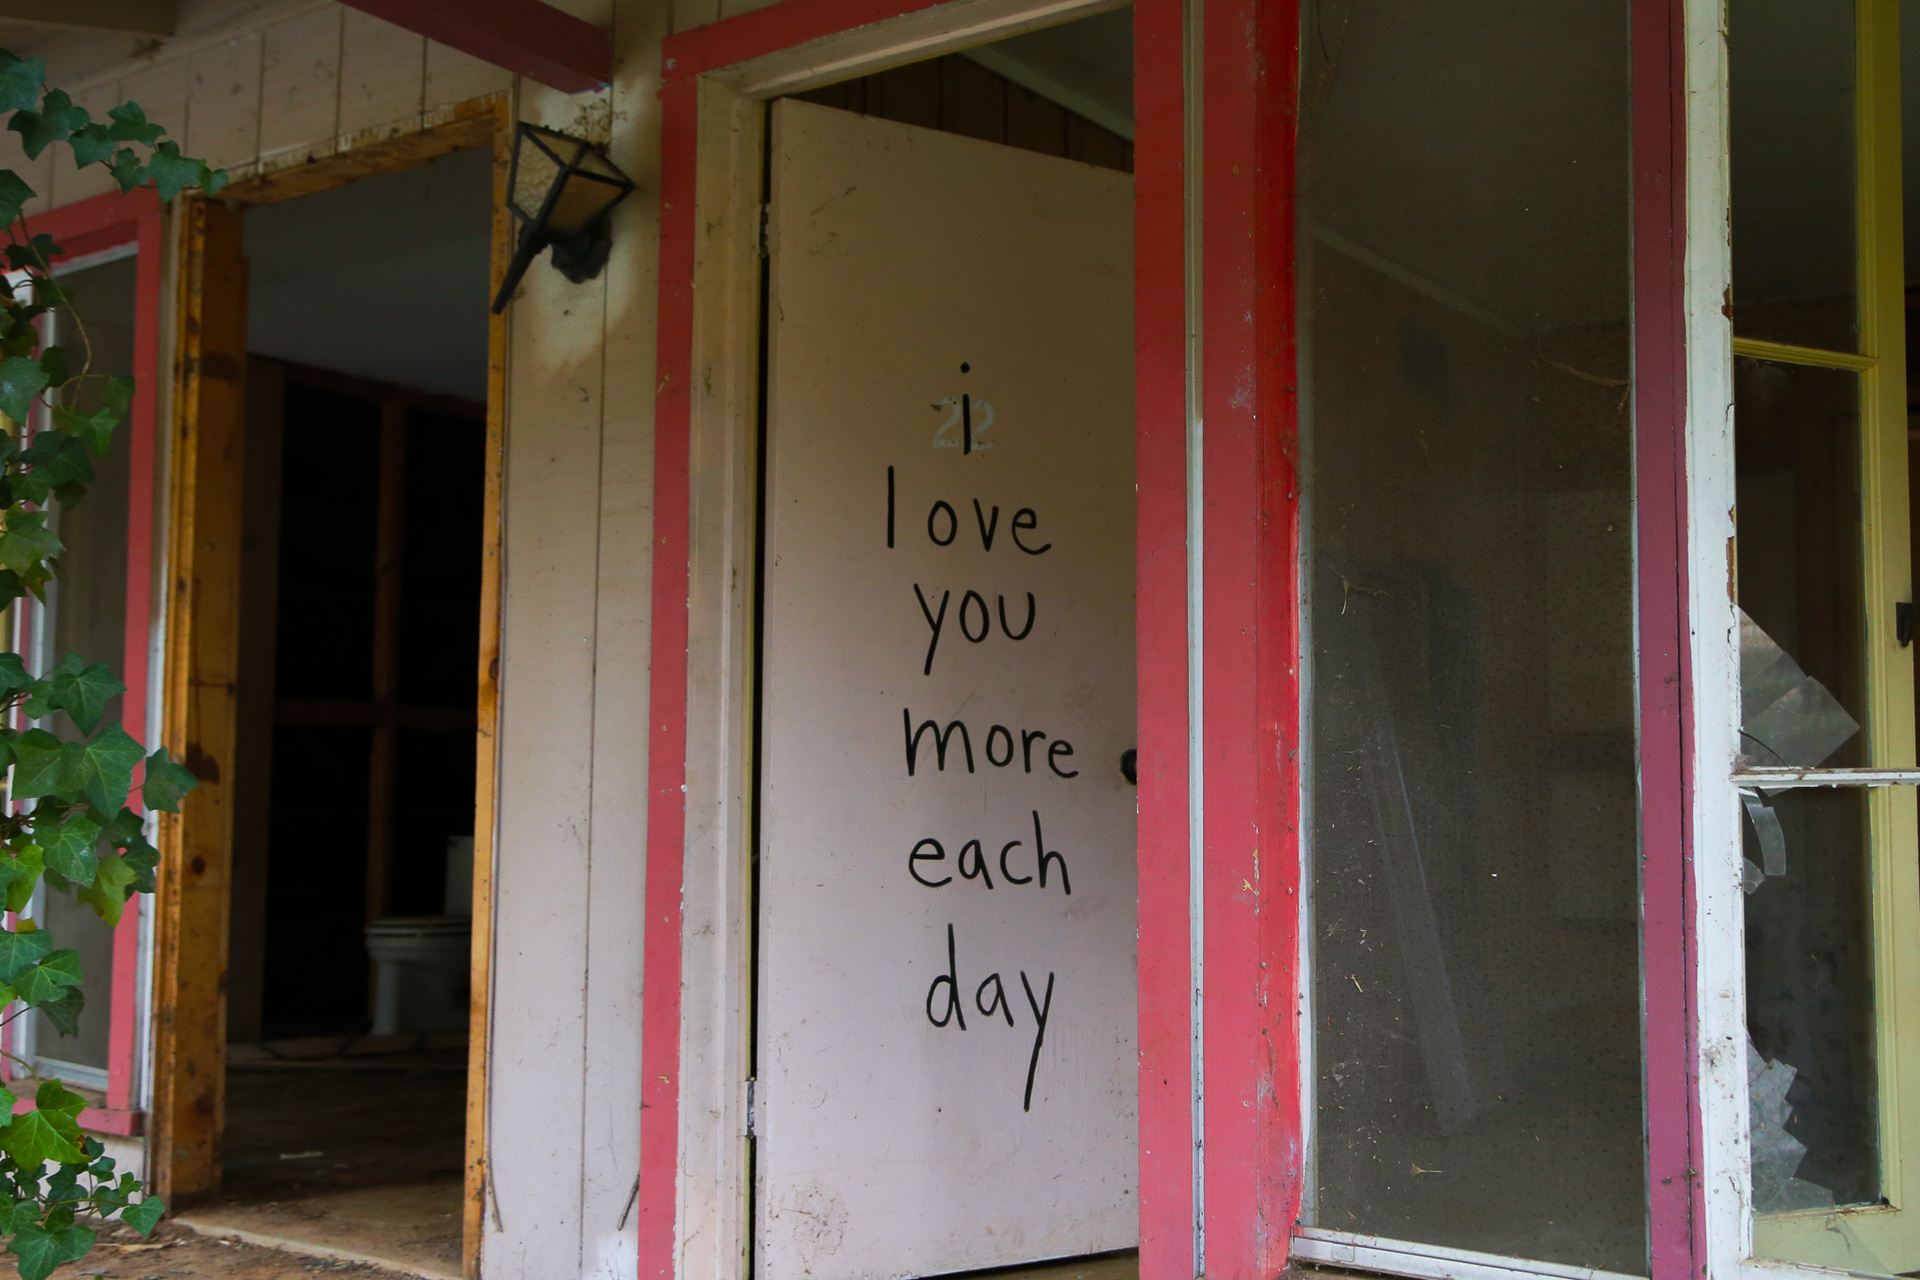 22
i
love
you
more
each
day